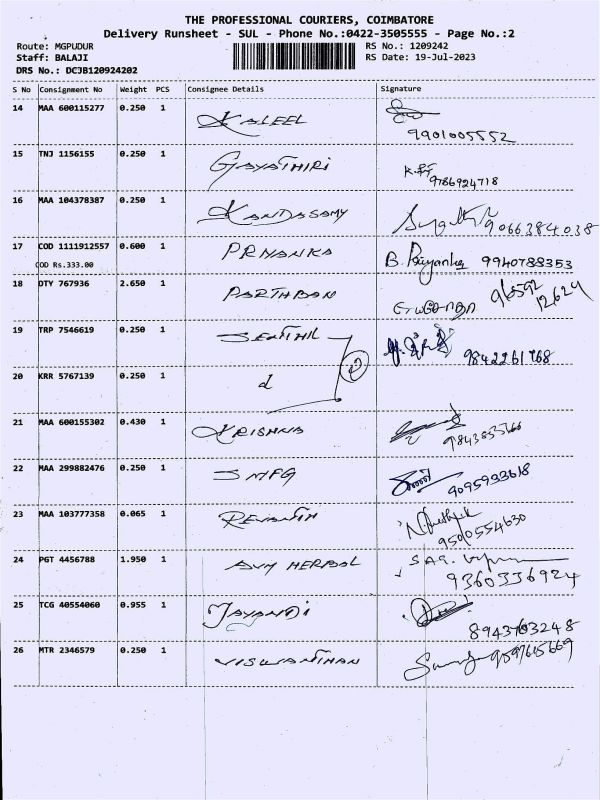 THE PROFESSIONAL COURIERS, COIMBATORE
Delivery Runsheet - SUL - Phone No.:0422-3505555 - Page No.:2
Route: MGPUDUR RS No.: 1209242
Staff: BALAJI RS Date: 19-Jul-2023
DRS No.: DCJB120924202
S No Consignment No Weight PCS Consignee Details Signature
14 MAA 600115277 0.250 1 KALEEL
9901005552
15 TNJ 1156155 0.250 1 GAYATHIRI
9786924718
16 MAA 104378387 0.250 1 KANDASAMY 9066384038
17 COD 1111912557 0.600 1 PRIYANKA B. Priyanka 9940788353
COD Rs.333.00
18 DTY 767936 2.650 1 PARTHBAN 96592
12624
19 TRP 7546619 0.250 1 SENTHIL 2
9842261768
20 KRR 5767139 0.250 1
21 MAA 600155302 0.430 1 KRISHNA
22 MAA 299882476 0.250 1 SMFG 9095933618
23 MAA 103777358 0.065 1 REVANTH
9500554630
24 PGT 4456788 1.950 1 AVM HERBAL
9360336924
25 TCG 40554060 0.955 1 JAYANDI
8943703248
26 MTR 2346579 0.250 1 VISWANTHAN